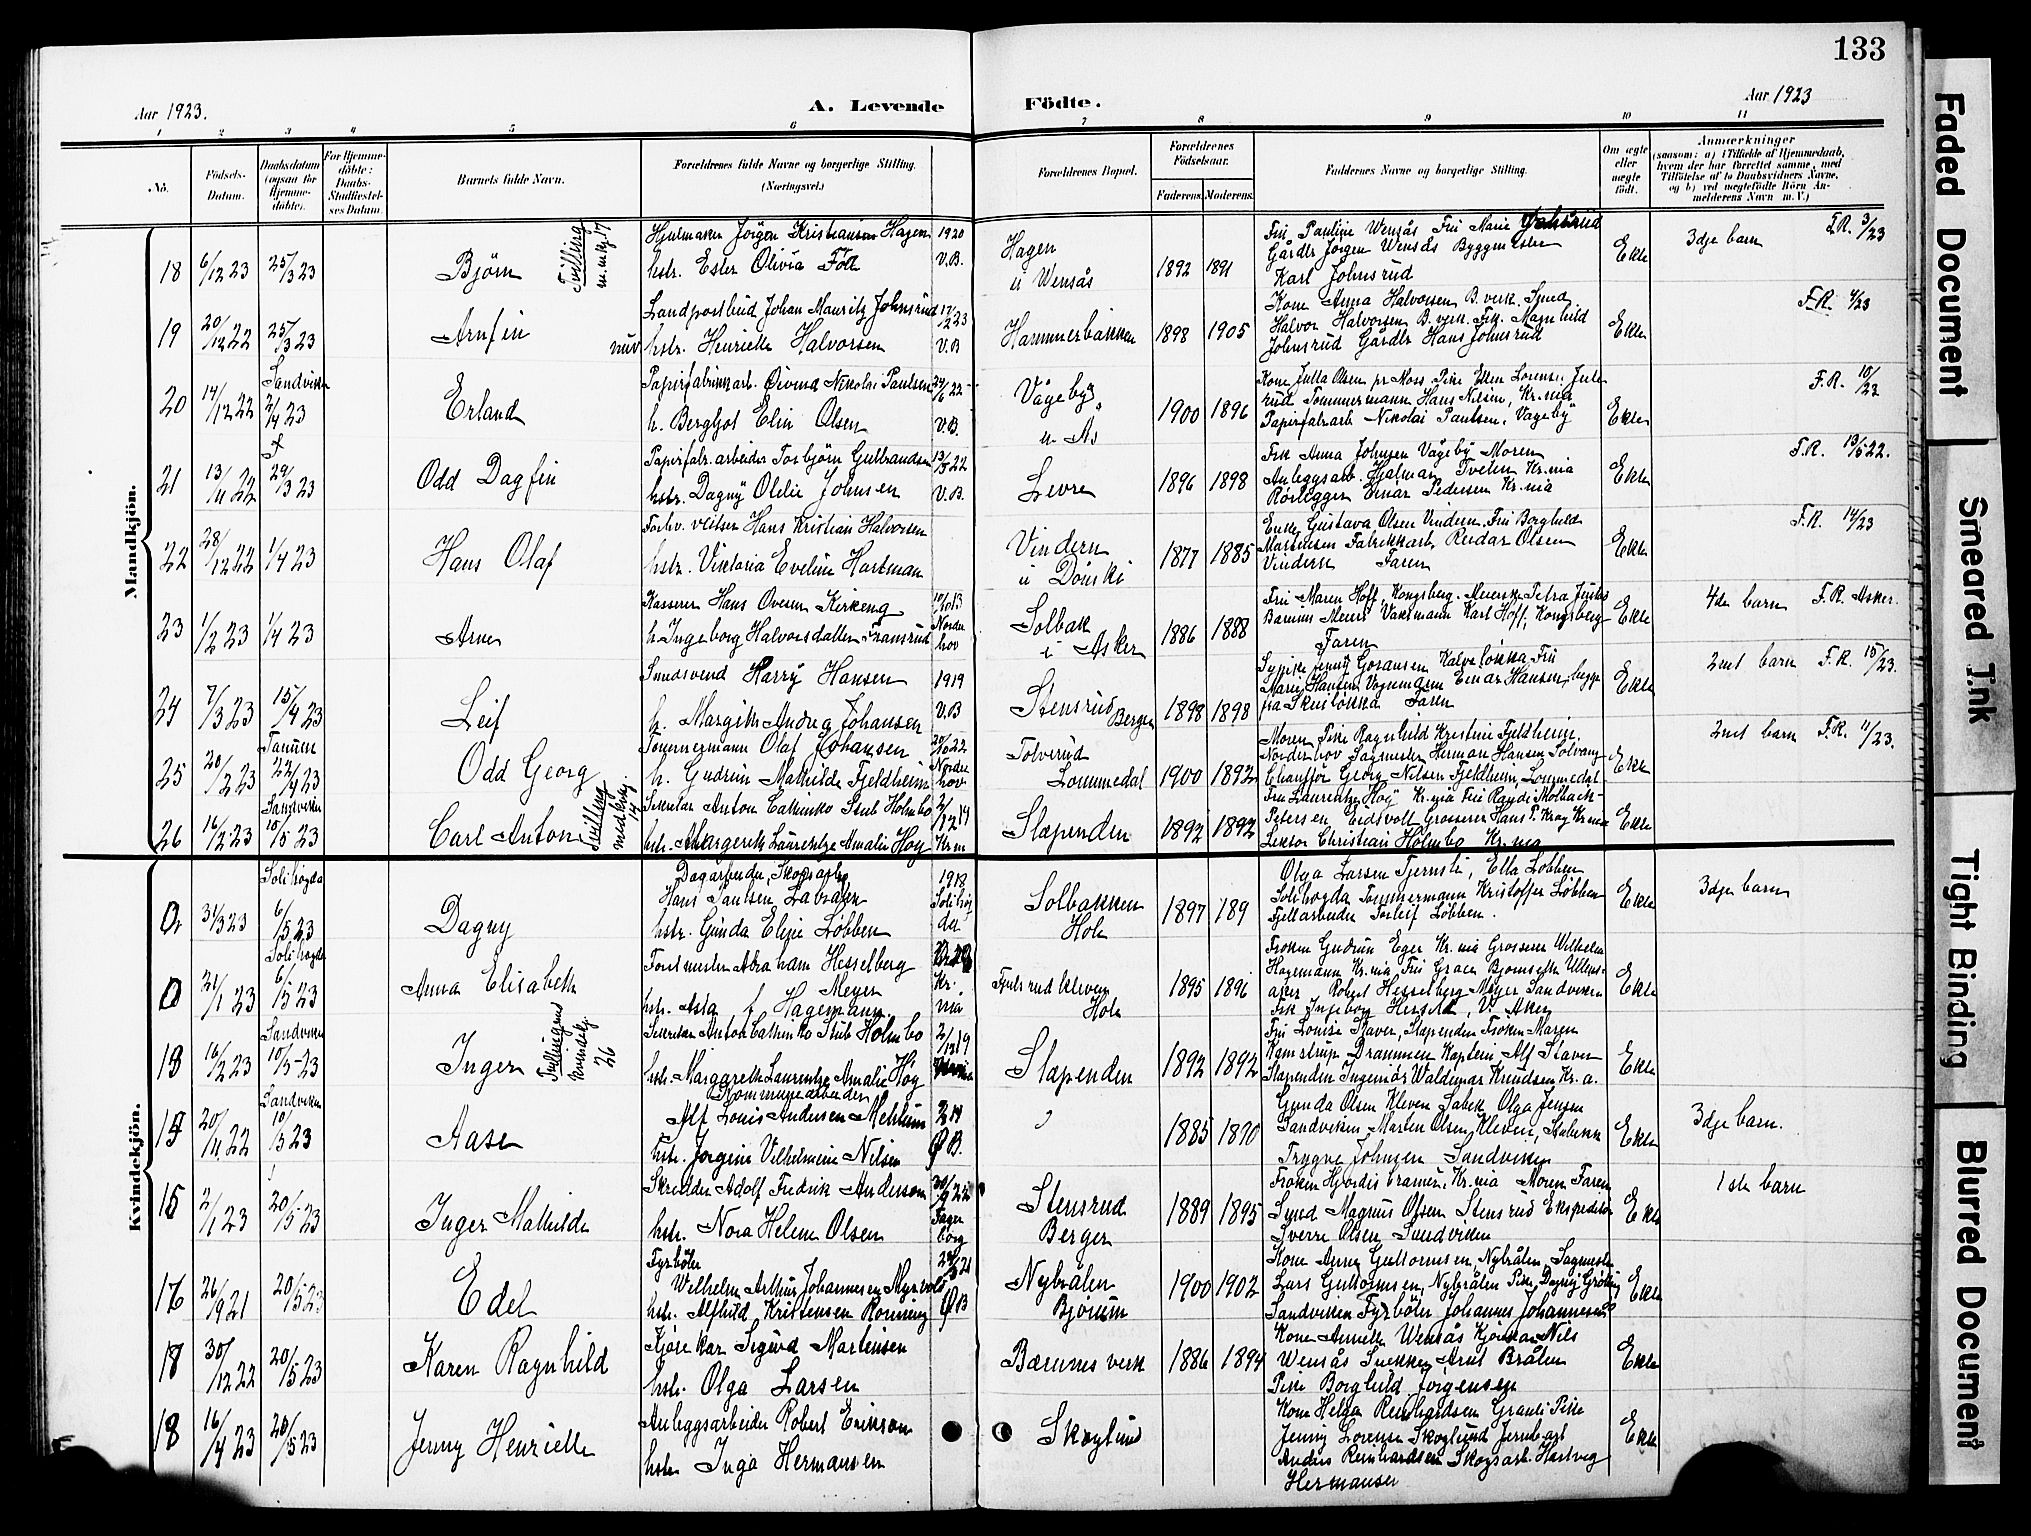 133
Aar 1923.
A. Levende Födte.
Aar 1923
1 2 3 4 5 6 7 8 9 10 11
No.
Födsels-Datum.
Daabsdatum (ogsaa for Hjemme-döbte).
For Hjemme-döbte: Daabs-Stadfæstelses Datum.
Barnets fulde Navn.
Forældrenes fulde Navne og borgerlige Stilling. (Næringsvei.)
Forældrenes Bopæl.
Forældrenes Födselsaar.
Faderens. Moderens.
Faddernes Navne og borgerlige Stilling.
Om ægte eller uægte födt.
Anmærkninger
(saasom: a) i Tilfælde af Hjemmedaab, hvem der har forrettet samme, med Tilföielse af to Daabsvidners Navne, og b) ved uægtefödte Börn Anmelderens Navn m. V.)
Mandkjön.
18 6/12 23 25/3 23 Bjørn Tvilling m.m.kj. 17
Hjulmaker Jörgen Kristiansen Hagen 1920
hstr. Ester Olivia V.B.
Hagen u Wensås 1892 1891
Fru Pauline Wensås Fru Marie Johnsrud
Gårdbr Jörgen Wensås Byggmester
Karl Johnsrud
Ekte 3dje barn F.R. 3/23
19 20/12 22 25/3 23 Arnfin
Landpostbud Johan Mauritz Johnsrud 17/12 23
hstr. Henriette Halvorsen V.B
Hammerbakken 1898 1905
Kone Anna Halvorsen B.verk. Smed
Halvor Halvorsen B.verk. Frk. Magnhild
Johnsrud Gårdbr Hans Johnsrud
Ekte F.R. 4/23
20 14/12 22 Sandviken 2/4 23 Erland
Papirfabrikkarb. Öivind Nikolai Paulsen
h. Bergljot Elin Olsen V.B.
Vågeby u Ås 1900 1896
Kone Julla Olsen pr Moss Pike Ellen Lorense
Tommermann Hans Nilsen, Kr.nia
Papirfabrarb Nikolai Paulsen, Vågeby
Ekte F.R. 10/23
21 13/11 22 29/3 23 Odd Dagfin
Papirfabr. arbeider Torbjörn Gulbrandsen 13/5 22
hstr. Dagny Otilie Johnsen V.B.
Levre 1896 1898
Frk Anna Johnsen Vågeby Moren
Anleggsarb. Hjalmar Tvelen Kr.nia
Rörlegger Einar Pedersen Kr.nia
Ekte F.R. 13/5 22.
22 28/12 22 1/4 23 Hans Olaf
Hans Kristian Halvorsen
hstr. Viktoria Eveline Hartman
Vindern u Dönski 1877 1885
Enke Gustava Olsen Vindern Fru Borghild
Martinsen Fabrikkarb. Reidar Olsen
Vindern Faren
Ekte F.R. 14/23
23 1/2 23 1/4 23 Arne
Kasserer Hans Ovesen Kirkeng 10/10 13
h. Ingeborg Halvorsdatter Fransrud Norderhov
Solbak i Asker 1886 1888
Fru Maren Hoff Kongsberg. Meierske Petra
Vaktmann Karl Hoff, Kongsberg
Faren
Ekte 4de barn F.R. Asker.
24 7/3 23 15/4 23 Leif
Smedsvend Harry Hansen 1919
h. Margith Andrea Johansen V.B
Stensrud Berger 1898 1898
Sypike Jenny Goransen Kalveløkka Fru
Marie Hansen Vognmann Einar Hansen, begge
fra Skuiløkka Faren
Ekte 2net barn F.R. 15/23.
25 20/2 23 Tanum 22/4 23 Odd Georg
Tömmermann Olaf Johansen 20/10 22
h. Gudrun Mathilde Fjeldheim Norderhov
Tolverud Lommedal 1900 1892
Moren Pike Ragnhild Kristine Fjeldheim,
Norderhov Sagmester Herman Hansen Solvang
Chaufför Georg Nilsen Fjeldheim, Lommedal
Ekte 2net barn F.R. 11/23.
26 16/2 23 Sandviken 10/5 23 Carl Anton Tvilling med kvkj 14
Sekretær Anton Cathinko Stub Holmbo 2/12 19
hstr. Margareth Laurentze Amalie Høy Kr.ni
Slæpenden 1892 1892
Fru Laurentze Høy Kr.nia Fru Randi Molbach-
Petersen Eidsvoll Grosserer Hans P. Krag Kr.nia
Lektor Christian Holmbo Kr.nia
Ekte
Kvindekjön.
31/3 23 Sollihøgda 6/5 23 Dagny
Dagarbeider, Skogsarb.
Hans Paulsen Labråten 1918
hstr. Gunda Elise Løbben Sollihøgda
Solbakken Hole 1897 189
Olga Larsen Tjernsli, Ella Løbben
Sollihøgda Tommermann Kristoffer Løbben
Fjellarbeider Torleif Løbben.
Ekte 3dje barn
21/1 23 Sollihøgda 6/5 23 Anna Elisabeth
Forstmester Abraham Hesselberg Meyer
hstr. Asta f Hagemann. Kr. nia
Fjulsrudkleven Hole 1895 1896
Frøken Gudrun Eger Kr.nia Grosserer Wilhelm
Hagemann Kr.nia, Fru Grace Bjornseth Ullens-
aker Robert Hesselberg Meyer Sandviken
Frk Ingeborg Herseth, V. Aker
Ekte
13 16/2 23 Sandviken 10/5 23 Inger Tvillingmd mandkj. 26
Sekretær Anton Cathinko Stub Holmbo 2/12 19
hstr. Margareth Laurentze Amalie Høy
Slæpenden 1892 1892
Fru Louise Staver, Slæpenden Frøken Maren
Kamstrup Drammen Kaptein Alf Staver
Slæpenden Ingeniör Waldemar Knudsen Kr.a.
Ekte
20/11 22 Sandviken 10/5 23 Aase
Kommunearbeider
Alf Louis Andersen Mehlum
hstr. Jorgine Vilhelmine Nilsen Ø B.
1885 1890
Gunda Olsen Kleven Sabek Olga Jensen
Sandviken Marten Olsen, Kleven, Stabekk
Trygve Johnsen Sandviken
Ekte 3dje barn.
15 2/1 23 20/5 23 Inger Mathilde
Skredder Adolf Fredrik Anderson 30/9 22
hstr. Nora Helene Olsen Fagerborg
Stensrud Berger 1889 1895
Frøken Hjordis Cramer, Kr.nia Moren Faren
Smed Magnus Olsen Stensrud Ekspeditör
Sverre Olsen Sandviken
Ekte 1ste barn
17 26/9 21 20/5 23 Edel
Fyrböter
Wilhelm Arthur Johannesen Myrvold
hstr. Alfhild Kristensen Rönning Ø B
Nybrålen Bjørum 1900 1902
Kone Anna Guttormsen, Nybrålen Sagmester
Lars Guttormsen, Nybrålen Pike Dagny
Sandviken Fyrböter Johannes Johannesen
Ekte
18 30/12 22 20/5 23 Karen Ragnhild
Kjørekar Sigurd Martinsen
hstr. Olga Larsen
Bærums verk 1886 1894
Kone Annette Wensås Kjörekar Nils
Wensås Snekker Arnt Brålen
Pike Borghild Jörgensen
Ekte
18 16/4 23 20/5 23 Jenny Henriette
Anleggsarbeider Robert Erikson
hstr Inga Hermansen
Skoglund
Kone Helga Reinhardsen Grauli Pike
Jenny Lorense Skoglund Jernbarb
Anders Reinhardsen Skogsarb. Hartvig
Hermansen
Ekte
Faded Document
Smeared Ink
Tight Binding
Blurred Document